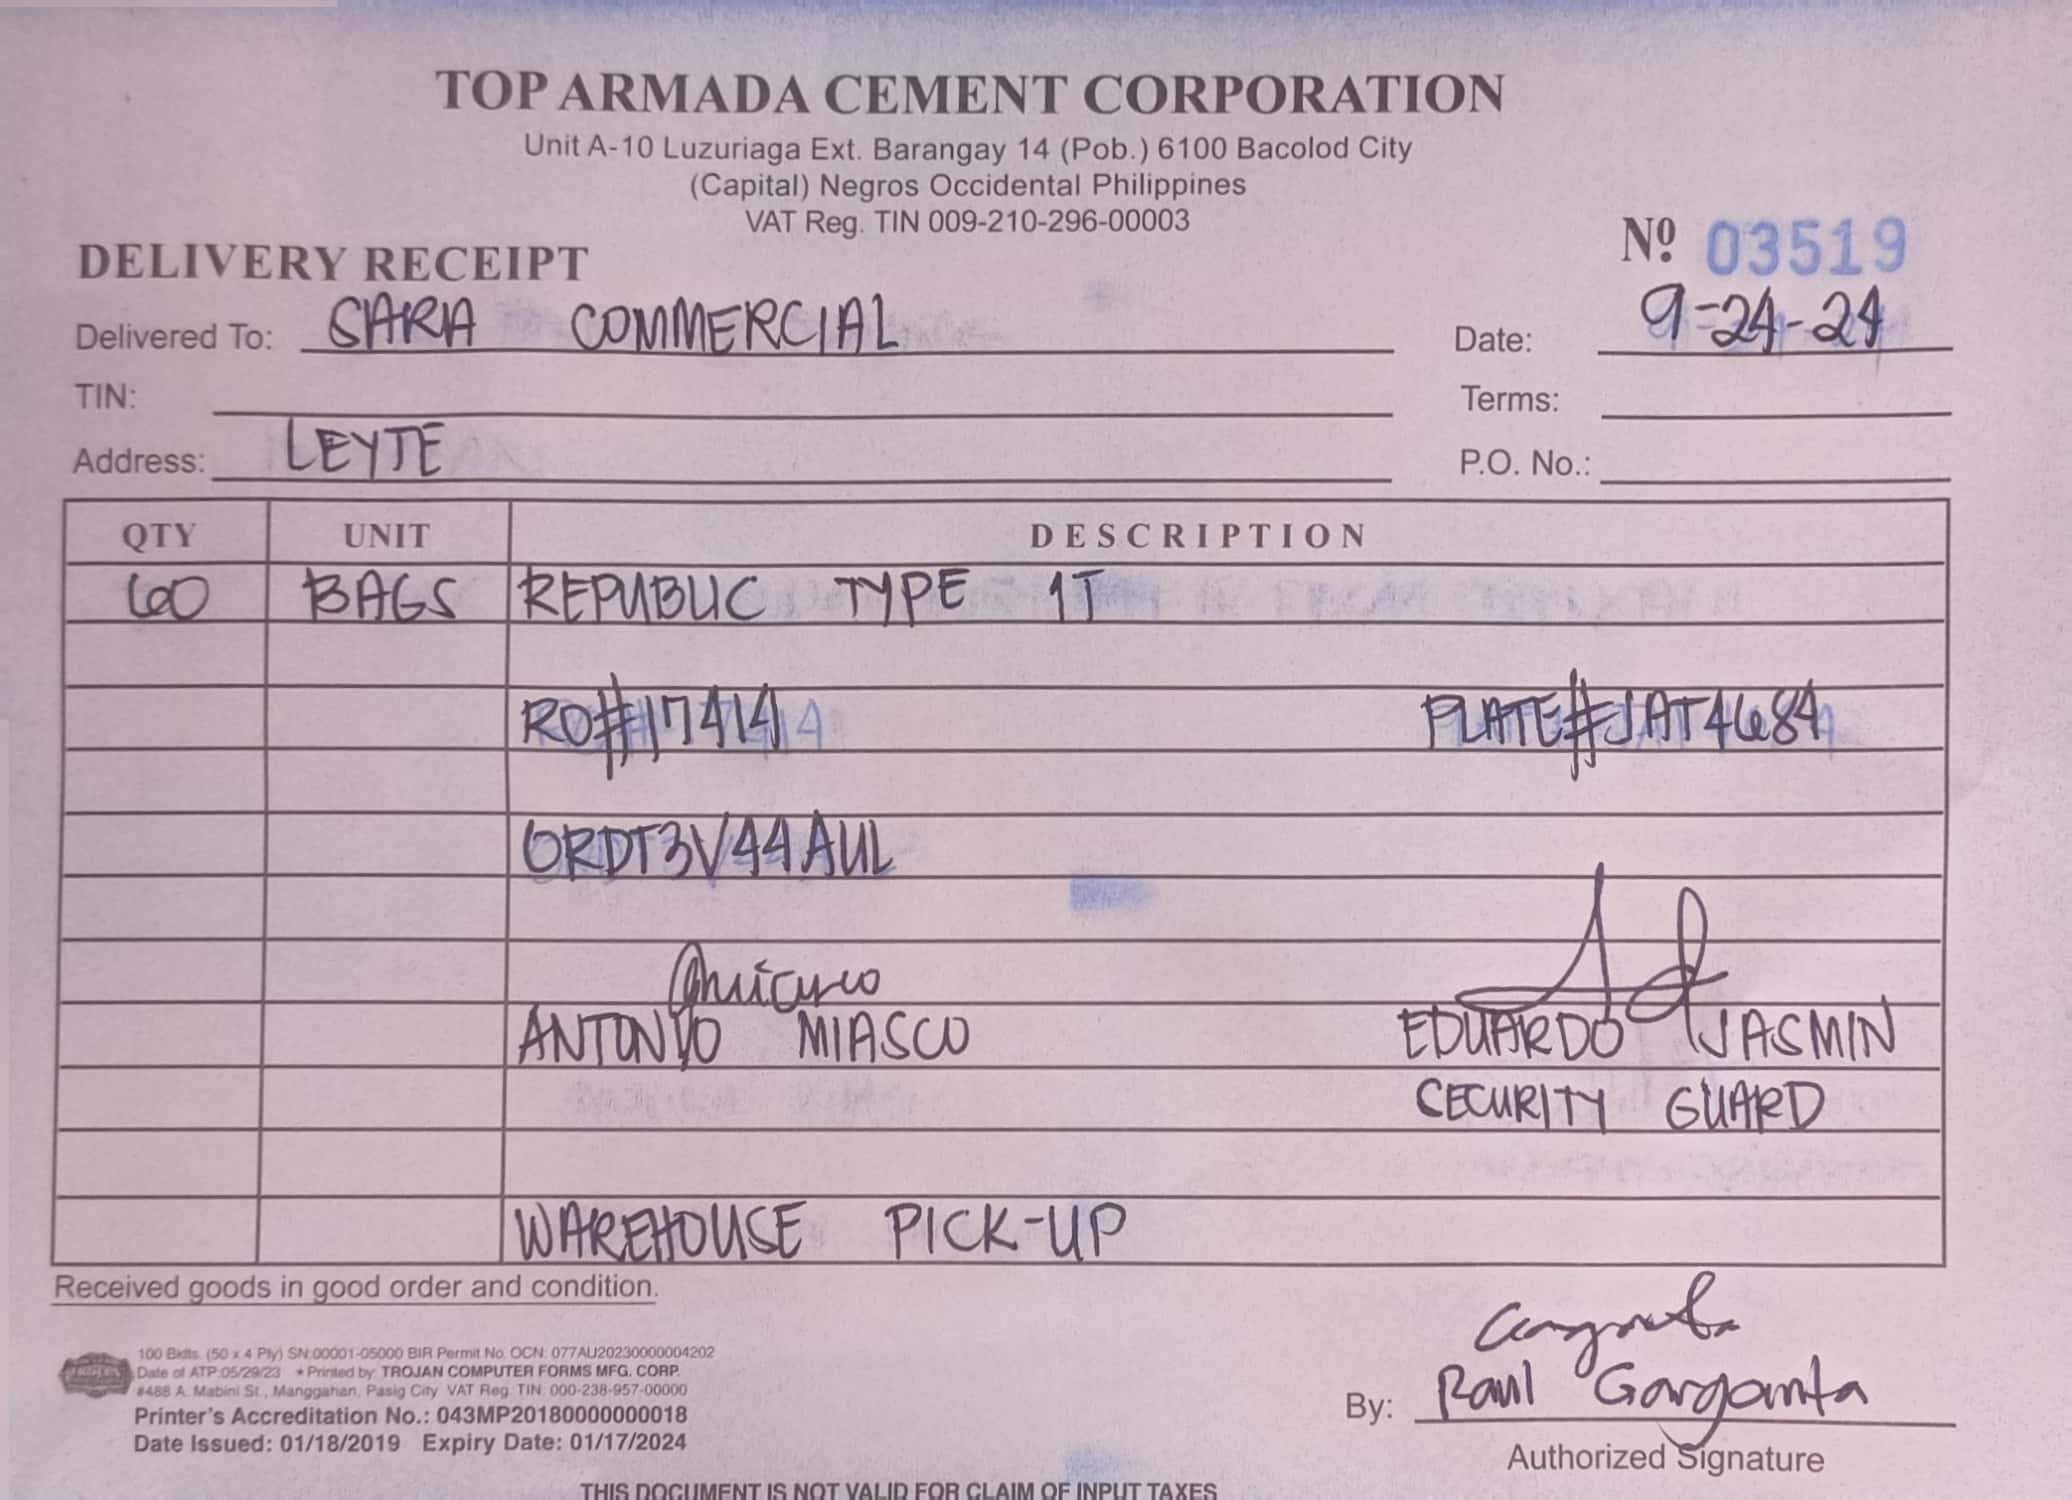 TOP ARMADA CEMENT CORPORATION
Unit A-10 Luzuriaga Ext. Barangay 14 (Pob.) 6100 Bacolod City
(Capital) Negros Occidental Philippines
VAT Reg. TIN 009-210-296-00003
DELIVERY RECEIPT Nº 03519
Delivered To: SARIA COMMERCIAL Date: 9-24-24
TIN: Terms:
Address: LEYTE P.O. No.:
QTY UNIT DESCRIPTION
60 BAGS REPUBLIC TYPE 1T
RO#17414 PLATE#JAT4684
ORDT3V44AUL
ANTONYO MIASCO EDUARDO JASMIN
SECURITY GUARD
WAREHOUSE PICK-UP
Received goods in good order and condition.
100 Bklts. (50 x 4 Ply) SN:00001-05000 BIR Permit No. OCN: 077AU20230000004202
Date of ATP:05/29/23 * Printed by: TROJAN COMPUTER FORMS MFG. CORP.
#488 A. Mabini St., Manggahan, Pasig City VAT Reg. TIN: 000-238-957-00000
Printer's Accreditation No.: 043MP20180000000018
Date Issued: 01/18/2019 Expiry Date: 01/17/2024
By: Raul Garganta
Authorized Signature
THIS DOCUMENT IS NOT VALID FOR CLAIM OF INPUT TAXES